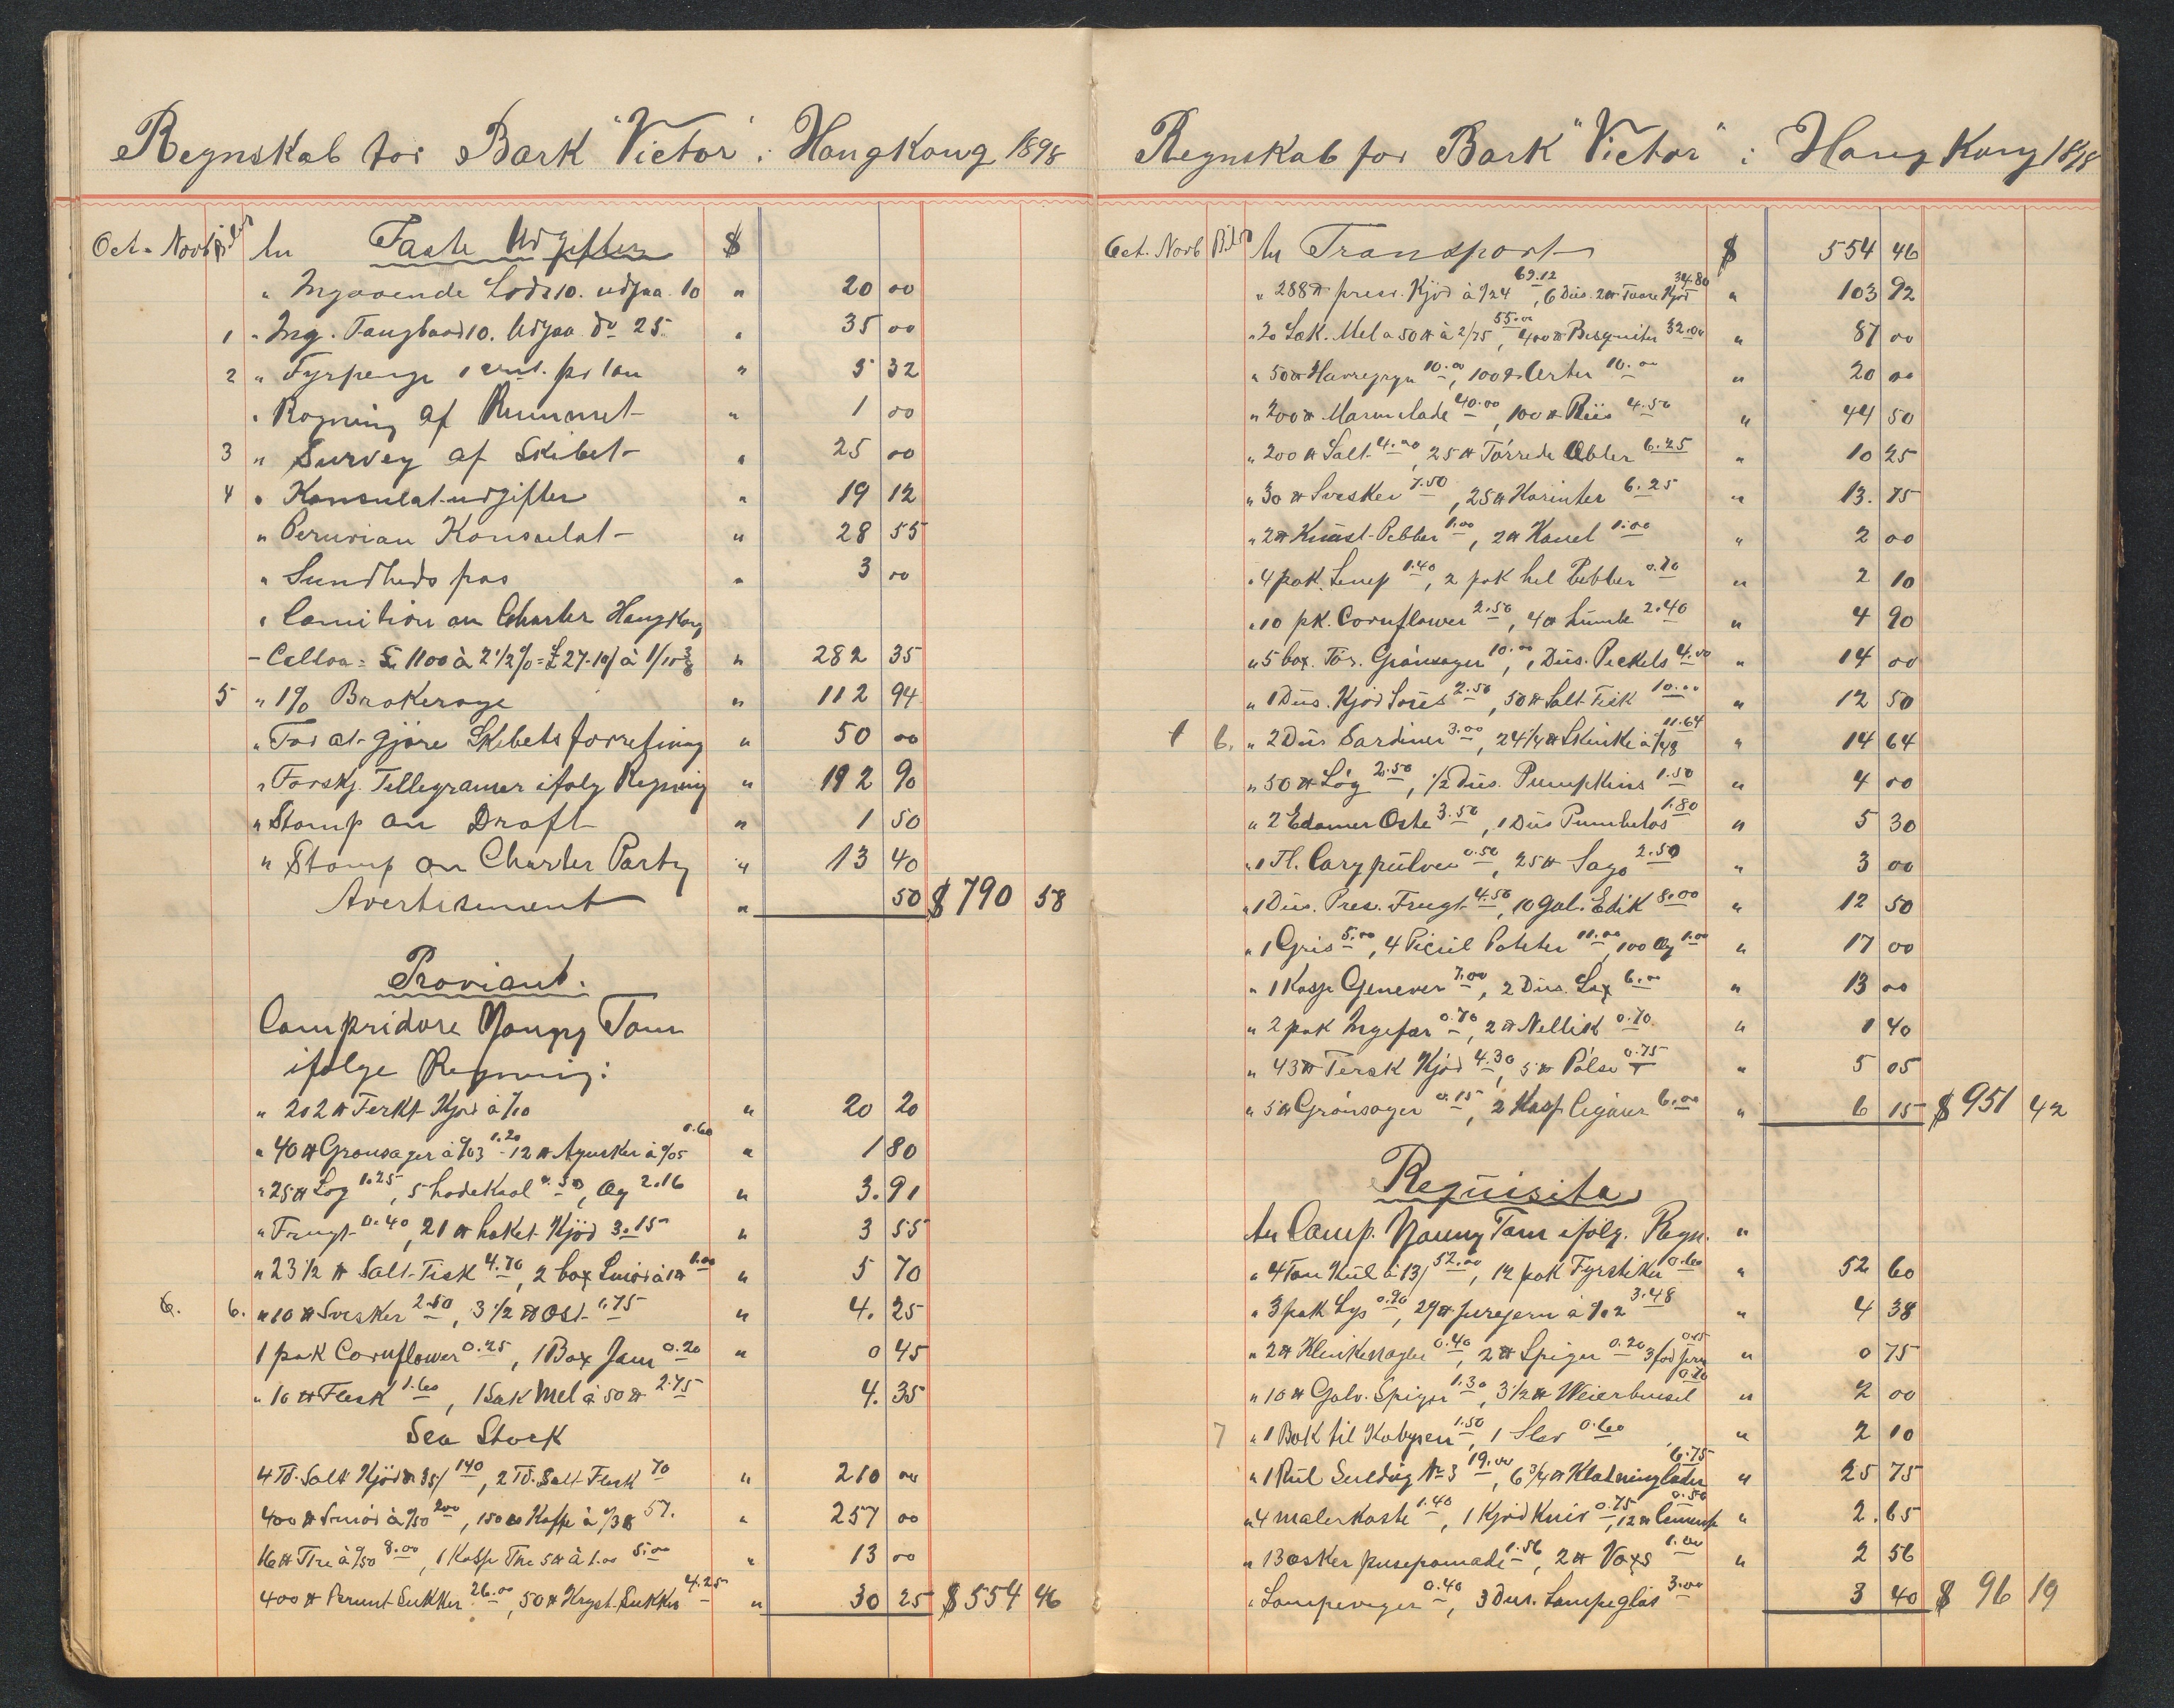 Regnskab for Bark "Victor" i HongKong 1898
Oct - Novb Bilag An Faste Udgifter $
" Ingaaende Lods 10. udgaa. 10 " 20 00
1 " Ing. Taugbaad 10. Udgaa do 25. " 35 00
2 " Fyrpenge 1 cent. pr ton " 5 32
" Rogning af Rummet " 1 00
3 " Survey af Skibet " 25 00
4 " Konsulat-udgifter " 19 12
" Peruvian Konsulat " 28 55
" Sundheds pas " 3 00
" Comition on Charter HongKong
- Calloa = £ 1100 à 2 1/2 % = £ 27-10/ à 1/11 3/8 " 282 35
5 " 1% Brokerage " 112 94
" For at gjöre Skibets forretning " 50 00
" Forskj. Tellegramer ifolg Regning " 192 90
" Stamp on Draft " 1 50
" Stamp on Charter Party " 13 40
Avertisement " 50 $ 790 58
Proviant.
Compridore Young Tom
ifölge Regning:
" 202 ℔ Ferkt Kjöd à /10 " 20 20
" 40 ℔ Grönsager à %03 1.20 - 12 ℔ Agurker à %05 0.60 " 1 80
" 25 ℔ Log 1.25, 5 hodeKaal 0.50, Æg 2.16 " 3.91
" Frugt 0.40, 21 ℔ haket Kjöd 3.15 " 3 55
" 23 1/2 ℔ Salt-Fisk 4.70, 2 box Smör à 1 ℔ 1.00 " 5 70
6. 6. " 10 ℔ Svesker 2.50, 3 1/2 ℔ Ost 1.75 " 4. 25
1 pak Cornflower 0.25, 1 Box Jam 0.20 " 0 45
" 10 ℔ Flesk 1.60, 1 Sæk Mel à 50 ℔ 2.75 " 4. 35
Sea Stock
4 Td. Salt Kjöd à 35/ 140, 2 Td. Salt Flesk 70 " 210 00
400 ℔ Smör à %50 200, 150 ℔ Kaffe à %38 57. " 257 00
16 ℔ The à %50 8.00, 1 Kasse The 5 ℔ à 1.00 5.00 " 13 00
400 ℔ Sukker 26.00, 50 ℔ Kryst. Sukker 4.25 " 30 25 $ 554 46
Regnskab for Bark "Victor" i Hong Kong 1898
Oct. Novb Bilag An Transport $ 554 46
" 288 ℔ pres. Kjöd à %24 69.12, 6 Dus. 2 ℔ Kjöd 34.80 " 103 92
" 20 Sæk. Mel a 50 ℔ à 2/75 55.00, 400 ℔ Besquiter 32.00 " 87 00
" 50 ℔ Havregryn 10.00, 100 ℔ Erter 10.00 " 20 00
" 200 ℔ Marmelade 40.00, 100 ℔ Riis 4.50 " 44 50
" 200 ℔ Salt 4.00, 25 ℔ Törrede Æbler 6.25 " 10 25
" 30 ℔ Svesker 7.50, 25 ℔ Korinter 6.25 " 13. 75
" 2 ℔ Knust-Pebber 1.00, 2 ℔ Kanel 1.00 " 2 00
" 4 pak. Senep 1.40, 2 pak hel Pebber 0.70 " 2 10
" 10 pk. Cornflower 2.50, 4 ℔ Humle 2.40 " 4 90
" 5 box. Tör. Grönsager 10.00, 1 Dus. Peckels 4.00 " 14 00
" 1 Dus. Kjöd Soies 2.50, 50 ℔ Salt-Fisk 10.00 " 12 50
6. " 2 Dus Sardiner 3.00, 24 1/4 ℔ Skinke à /48 11.64 " 14 64
" 50 ℔ Lög 2.50, 1/2 Dus. Pumpkins 1.50 " 4 00
" 2 Edamer Oste 3.50, 1 Dus 1.80 " 5 30
" 1 Fl. Cary pulver 0.50, 25 ℔ Sago 2.50 " 3 00
" 1 Dus. Pres. Frugt 4.50, 10 Gal. Edik 8.00 " 12 50
" 1 Gris 5.00, 4 Picul Poteter 11.00, 100 Æg 1.00 " 17 00
" 1 Kasse Genever 7.00, 2 Dus. Lax 6.00 " 13 00
" 2 pak Ingefær 0.70, 2 ℔ Nellik 0.70 " 1 40
" 43 ℔ Fersk Kjöd 4.30, 5 ℔ Pölse 0.75 " 5 05
" 5 ℔ Grönsager 0.15, 2 Kasse Cigarer 6.00 " 6 15 $ 951 42
Requisita
An Comp. Young Tom ifölg. Regn. "
" 4 Ton Kul à 13/ 52.00, 12 pak Fyrstikker 0.60 " 52 60
" 3 pak Lys 0.90, 29 ℔ à %12 3.48 " 4 38
" 2 ℔ Klinkenagler 0.40, 2 ℔ Spiger 0.20 3 fod 0.15 " 0 75
" 10 ℔ Galv. Spiger 1.30, 3 1/2 ℔ 0.70 " 2 00
7 " 1 Bok til Kabysen 1.50, 1 Slev 0.60 " 2 10
" 1 Rul Seildug No 3 19.00, 6 3/4 ℔ Klædninglæder 6.75 " 25 75
" 4 malerkoste 1.40, 1 Kjöd Kniv 0.75, 12 ℔ Cement 0.50 " 2. 65
" 13 æsker pusepomade 1.56, 2 ℔ Voxs 1.00 " 2 56
" Lampeveger 0.40, 3 Dus. Lampeglas 3.00 3 40 $ 96 19